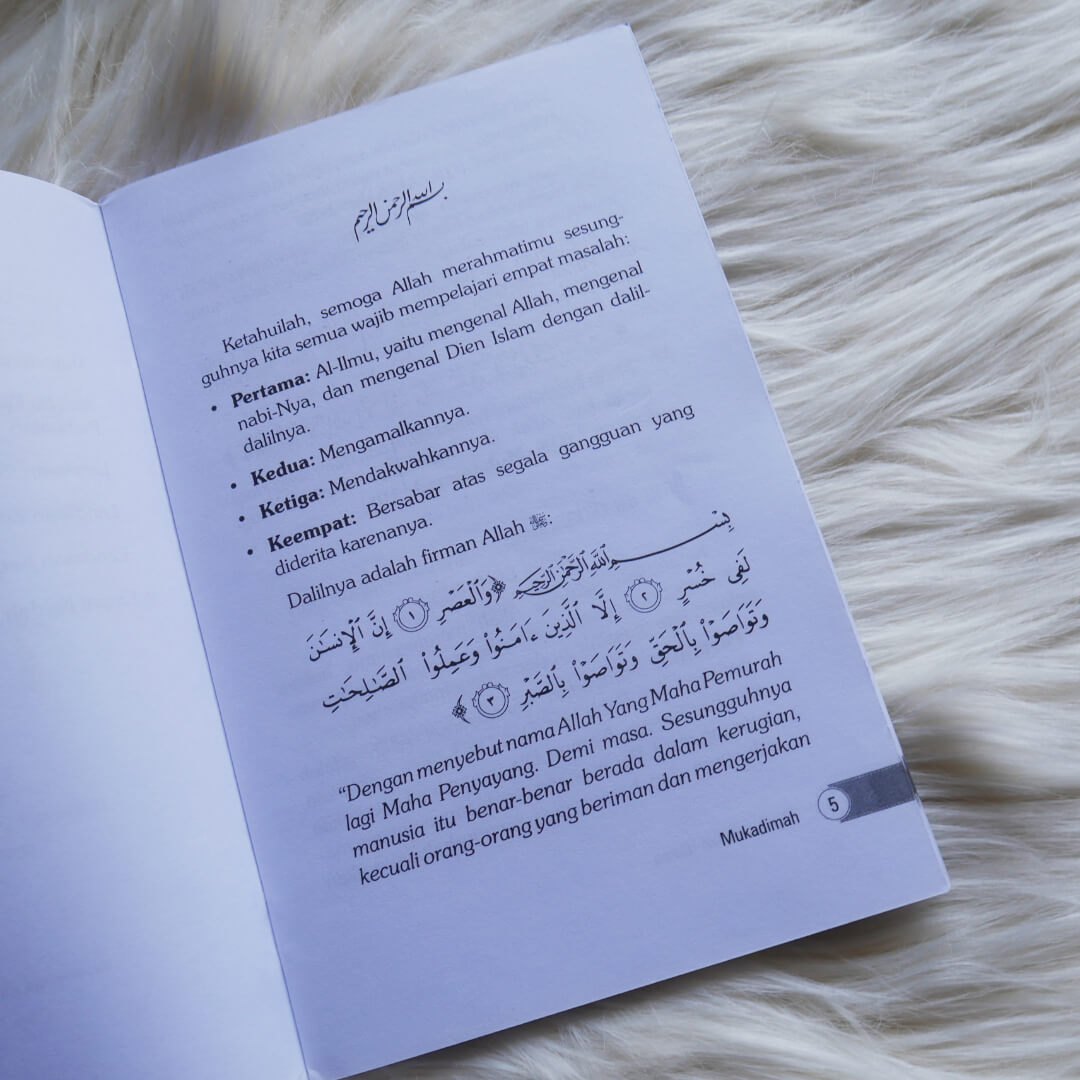 بسم الله الرحمن الرحيم
Ketahuilah, semoga Allah merahmatimu sesung-
guhnya kita semua wajib mempelajari empat masalah:
• Pertama: Al-Ilmu, yaitu mengenal Allah, mengenal
nabi-Nya, dan mengenal Dien Islam dengan dalil-
dalilnya.
• Kedua: Mengamalkannya.
• Ketiga: Mendakwahkannya.
• Keempat: Bersabar atas segala gangguan yang
diderita karenanya.
Dalilnya adalah firman Allah ﷻ:
بِسْــــمِ ٱللَّهِ ٱلرَّحْمَٰنِ ٱلرَّحِيمِ ﴿وَٱلْعَصْرِ ١ إِنَّ ٱلْإِنسَٰنَ
لَفِى خُسْرٍ ٢ إِلَّا ٱلَّذِينَ ءَامَنُوا۟ وَعَمِلُوا۟ ٱلصَّٰلِحَٰتِ
وَتَوَاصَوْا۟ بِٱلْحَقِّ وَتَوَاصَوْا۟ بِٱلصَّبْرِ ٣﴾
“Dengan menyebut nama Allah Yang Maha Pemurah
lagi Maha Penyayang. Demi masa. Sesungguhnya
manusia itu benar-benar berada dalam kerugian,
kecuali orang-orang yang beriman dan mengerjakan
Mukadimah 5